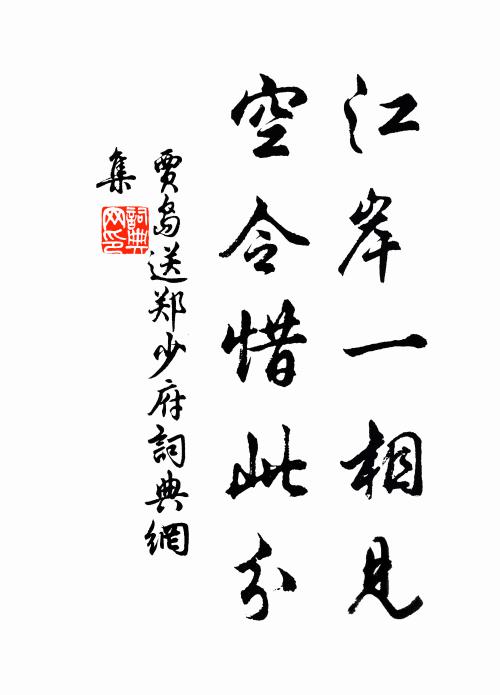 江岸一相見
空令惜此分
賈島送郑少府詞典網
集
詞典
网印